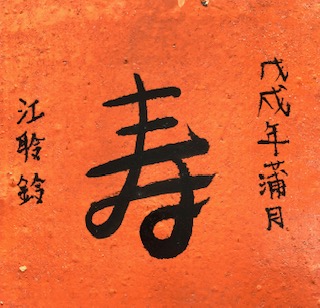 戊戌年蒲月
寿
江聆鈴